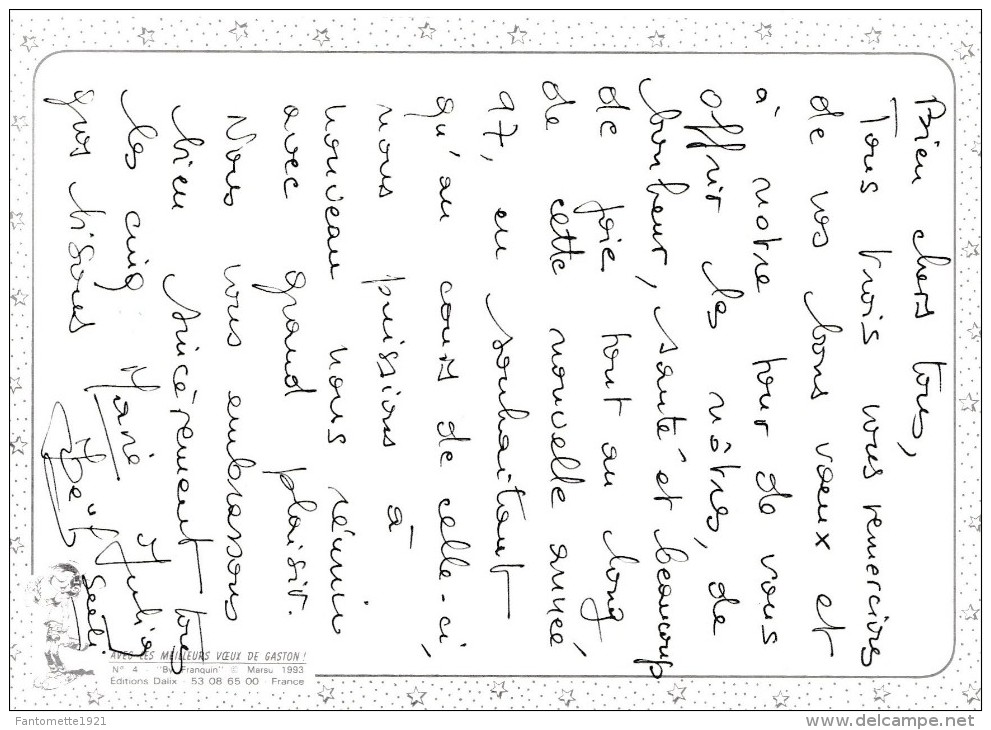 Bien chers tous,
Tous trois vous remercions
de vos bons voeux et
à notre tour de vous
offrir les nôtres, de
bonheur, santé et beaucoup
de joie tout au long
de cette nouvelle année
97, en souhaitant
qu'au cours de celle-ci,
nous puissions à
nouveau nous réunir
avec grand plaisir.
Nous vous embrassons
bien sincérement tous
les cinq
gros bisous
Marie
Julie
AVEC LES MEILLEURS VŒUX DE GASTON !
N° 4 - "By Franquin" © Marsu 1993
Éditions Dalix - 53 08 65 00 - France
Fantomette1921
www.delcampe.net